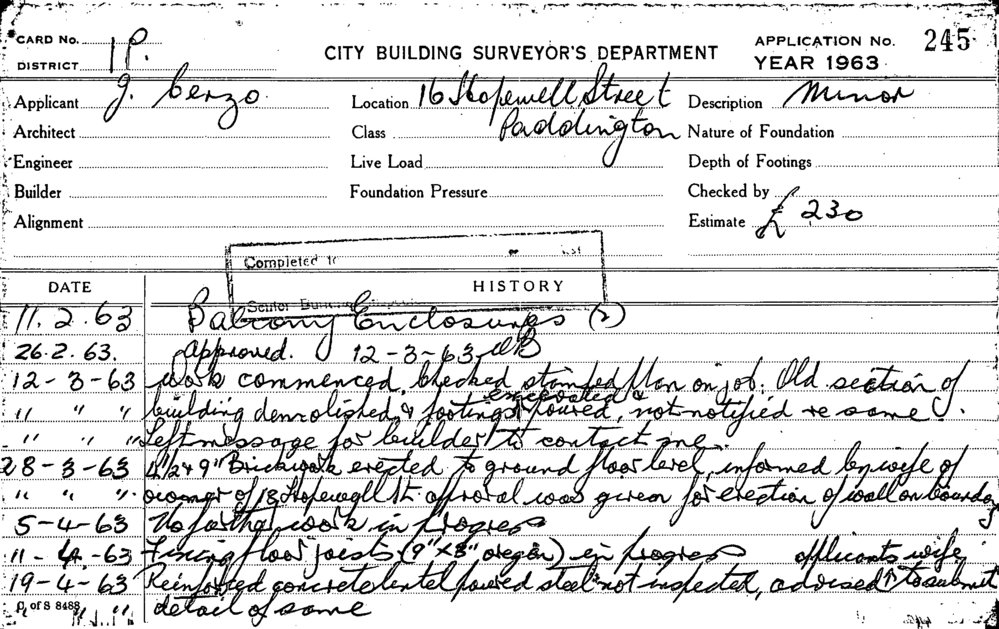 CARD No. 1P.
CITY BUILDING SURVEYOR'S DEPARTMENT
APPLICATION No. 245
DISTRICT
YEAR 1963
Applicant J. Cenzo
Location 16 Hopewell Street
Description Minor
Architect
Class Paddington
Nature of Foundation
Engineer
Live Load
Depth of Footings
Builder
Foundation Pressure
Checked by
Alignment
Estimate £ 230
Completed
DATE
HISTORY
11.2.63 Balcony Enclosures (2)
26.2.63. Approved. 12-3-63
12-3-63 work commenced, checked stamped plan on job. Old section of
" " " building demolished & footings excavated & poured, not notified re same.
" " " Left message for builder to contact me
28-3-63 4½ & 9" Brickwork erected to ground floor level, informed by wife of
" " " owner of 18 Hopewell St approval was given for erection of wall on boundary
5-4-63 No further work in progress
11-4-63 Fixing floor joists (9" x 3" oregon) in progress applicants wife
19-4-63 Reinforced concrete lentel poured steel not inspected, advised ↑ to submit
P. of S 8488 " " detail of same